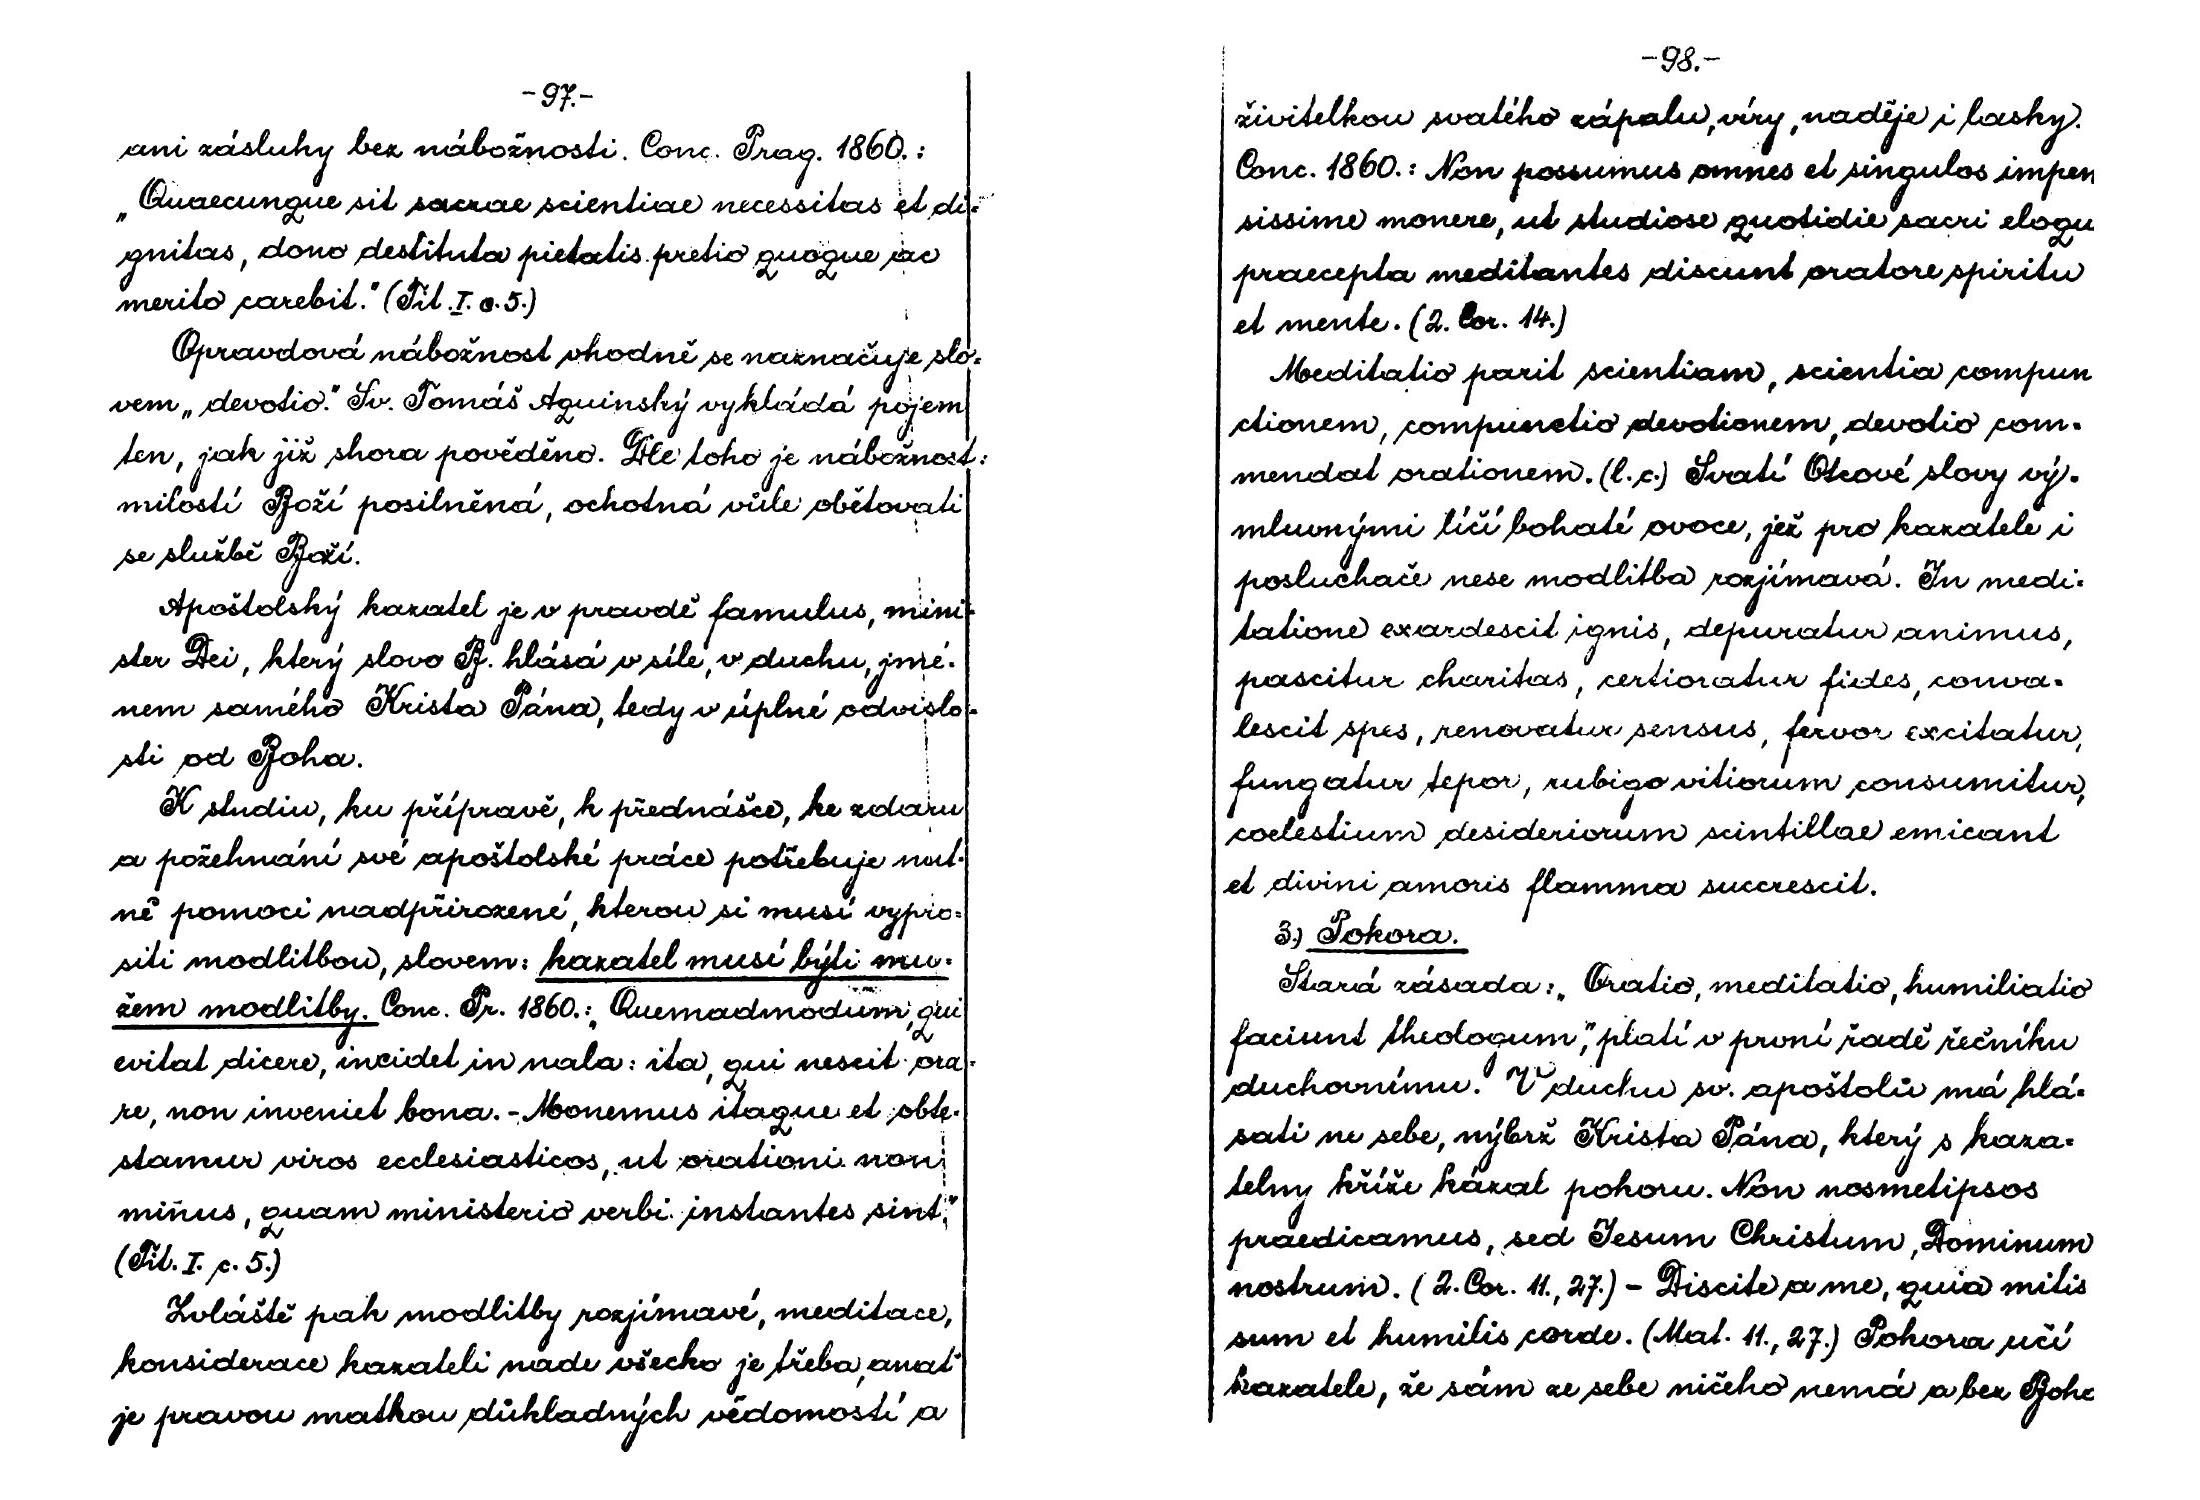 -97.-
ani zásluhy bez nábožnosti. Conc. Prag. 1860.:
„Quaecunque sit sacrae scientiae necessitas et di=
gnitas, dono destituta pietatis pretio quoque ac
merito carebit." (Tit. I. c. 5.)
Opravdová nábožnost vhodně se naznačuje slo=
vem „devotio." Sv. Tomáš Aquinský vykládá pojem
ten, jak již shora pověděno. Dle toho je nábožnost:
milostí Boží posilněná, ochotná vůle obětovati
se službě Boží.
Apoštolský kazatel je v pravdě famulus, mini=
ster Dei, který slovo B. hlásá v síle, v duchu, jmé=
nem samého Krista Pána, tedy v úplné odvislo=
sti od Boha.
K studiu, ku přípravě, k přednášce, ke zdaru
a požehnání své apoštolské práce potřebuje nut=
ně pomoci nadpřirozené, kterou si musí vypro=
siti modlitbou, slovem: kazatel musí býti mu=
žem modlitby. Conc. Pr. 1860.: „Quemadmodum, qui
evitat dicere, incidet in mala: ita, qui nescit ora=
re, non inveniet bona. - Monemus itaque et obte=
stamur viros ecclesiasticos, ut orationi non
miñus, quam ministerio verbi instantes sint."
(Tit. I. c. 5.)
Zvláště pak modlitby rozjímavé, meditace,
konsiderace kazateli nade všecko je třeba, anať
je pravou matkou důkladných vědomostí a
-98.-
živitelkou svatého zápalu, víry, naděje i lasky.
Conc. 1860.: Non possumus omnes et singulos impen
sissime monere, ut studiose quotidie sacri eloqu
praecepta meditantes discunt oratore spiritu
et mente. (2. Cor. 14.)
Meditatio parit scientiam, scientia compun
ctionem, compunctio devotionem, devotio com=
mendat orationem. (l. c.) Svatí Otcové slovy vý=
mluvnými líčí bohaté ovoce, jež pro kazatele i
posluchače nese modlitba rozjímavá. In medi=
tatione exardescit ignis, depuratur animus,
pascitur charitas, certioratur fides, conva=
lescit spes, renovatur sensus, fervor excitatur,
fungatur tepor, rubigo vitiorum consumitur,
coelestium desideriorum scintillae emicant
et divini amoris flamma succrescit.
3.) Pokora.
Stará zásada: „Oratio, meditatio, humiliatio
faciunt theologum", platí v první řadě řečníku
duchovnímu. V duchu sv. apoštolů má hlá=
sati ne sebe, nýbrž Krista Pána, který s kaza=
telny kříže kázal pokoru. Non nosmetipsos
praedicamus, sed Iesum Christum, Dominum
nostrum. (2. Cor. 11., 27.) - Discite a me, quia mitis
sum et humilis corde. (Mat. 11., 27.) Pokora učí
kazatele, že sám ze sebe ničeho nemá a bez Boha